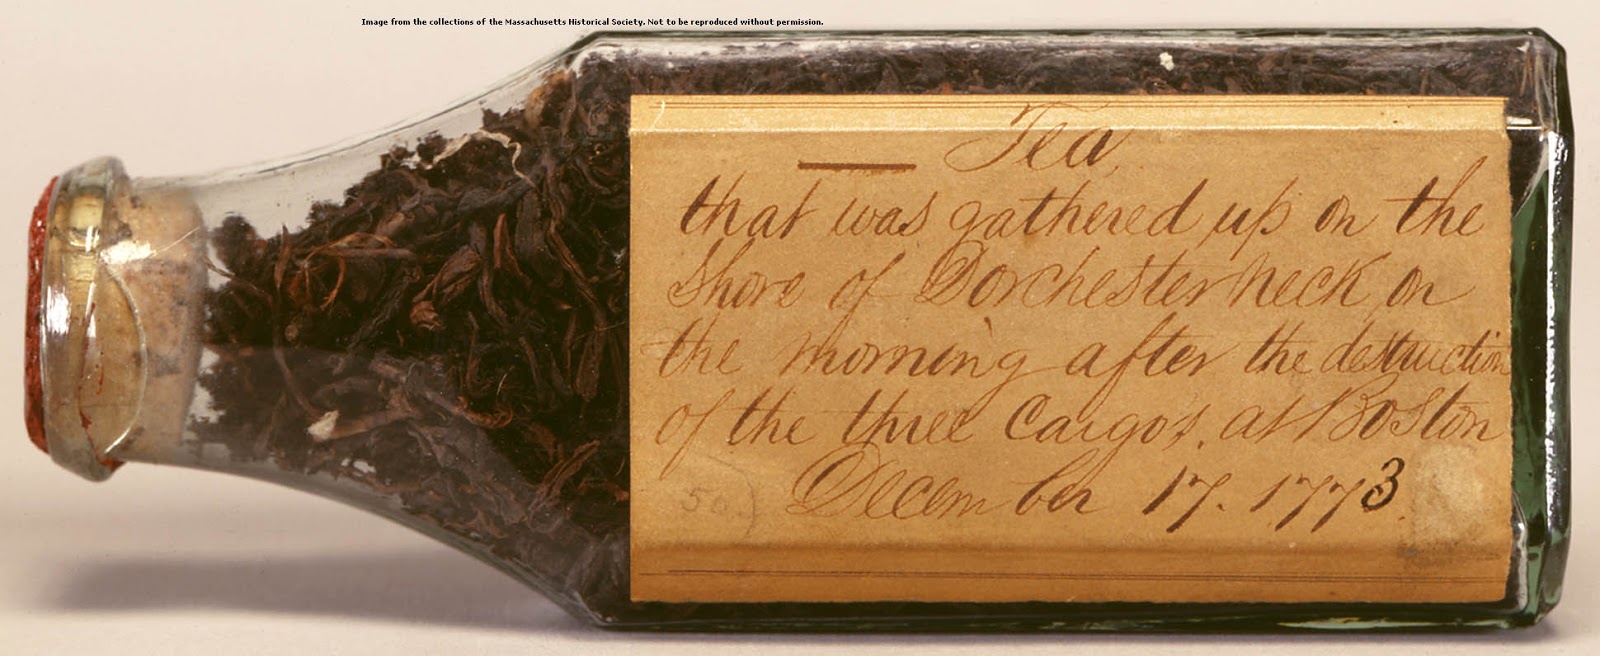 Image from the collections of the Massachusetts Historical Society. Not to be reproduced without permission.
Tea
that was gathered up on the
Shore of Dorchester Neck on
the morning after the destruction
of the three Cargo's at Boston
December 17. 1773
50.)